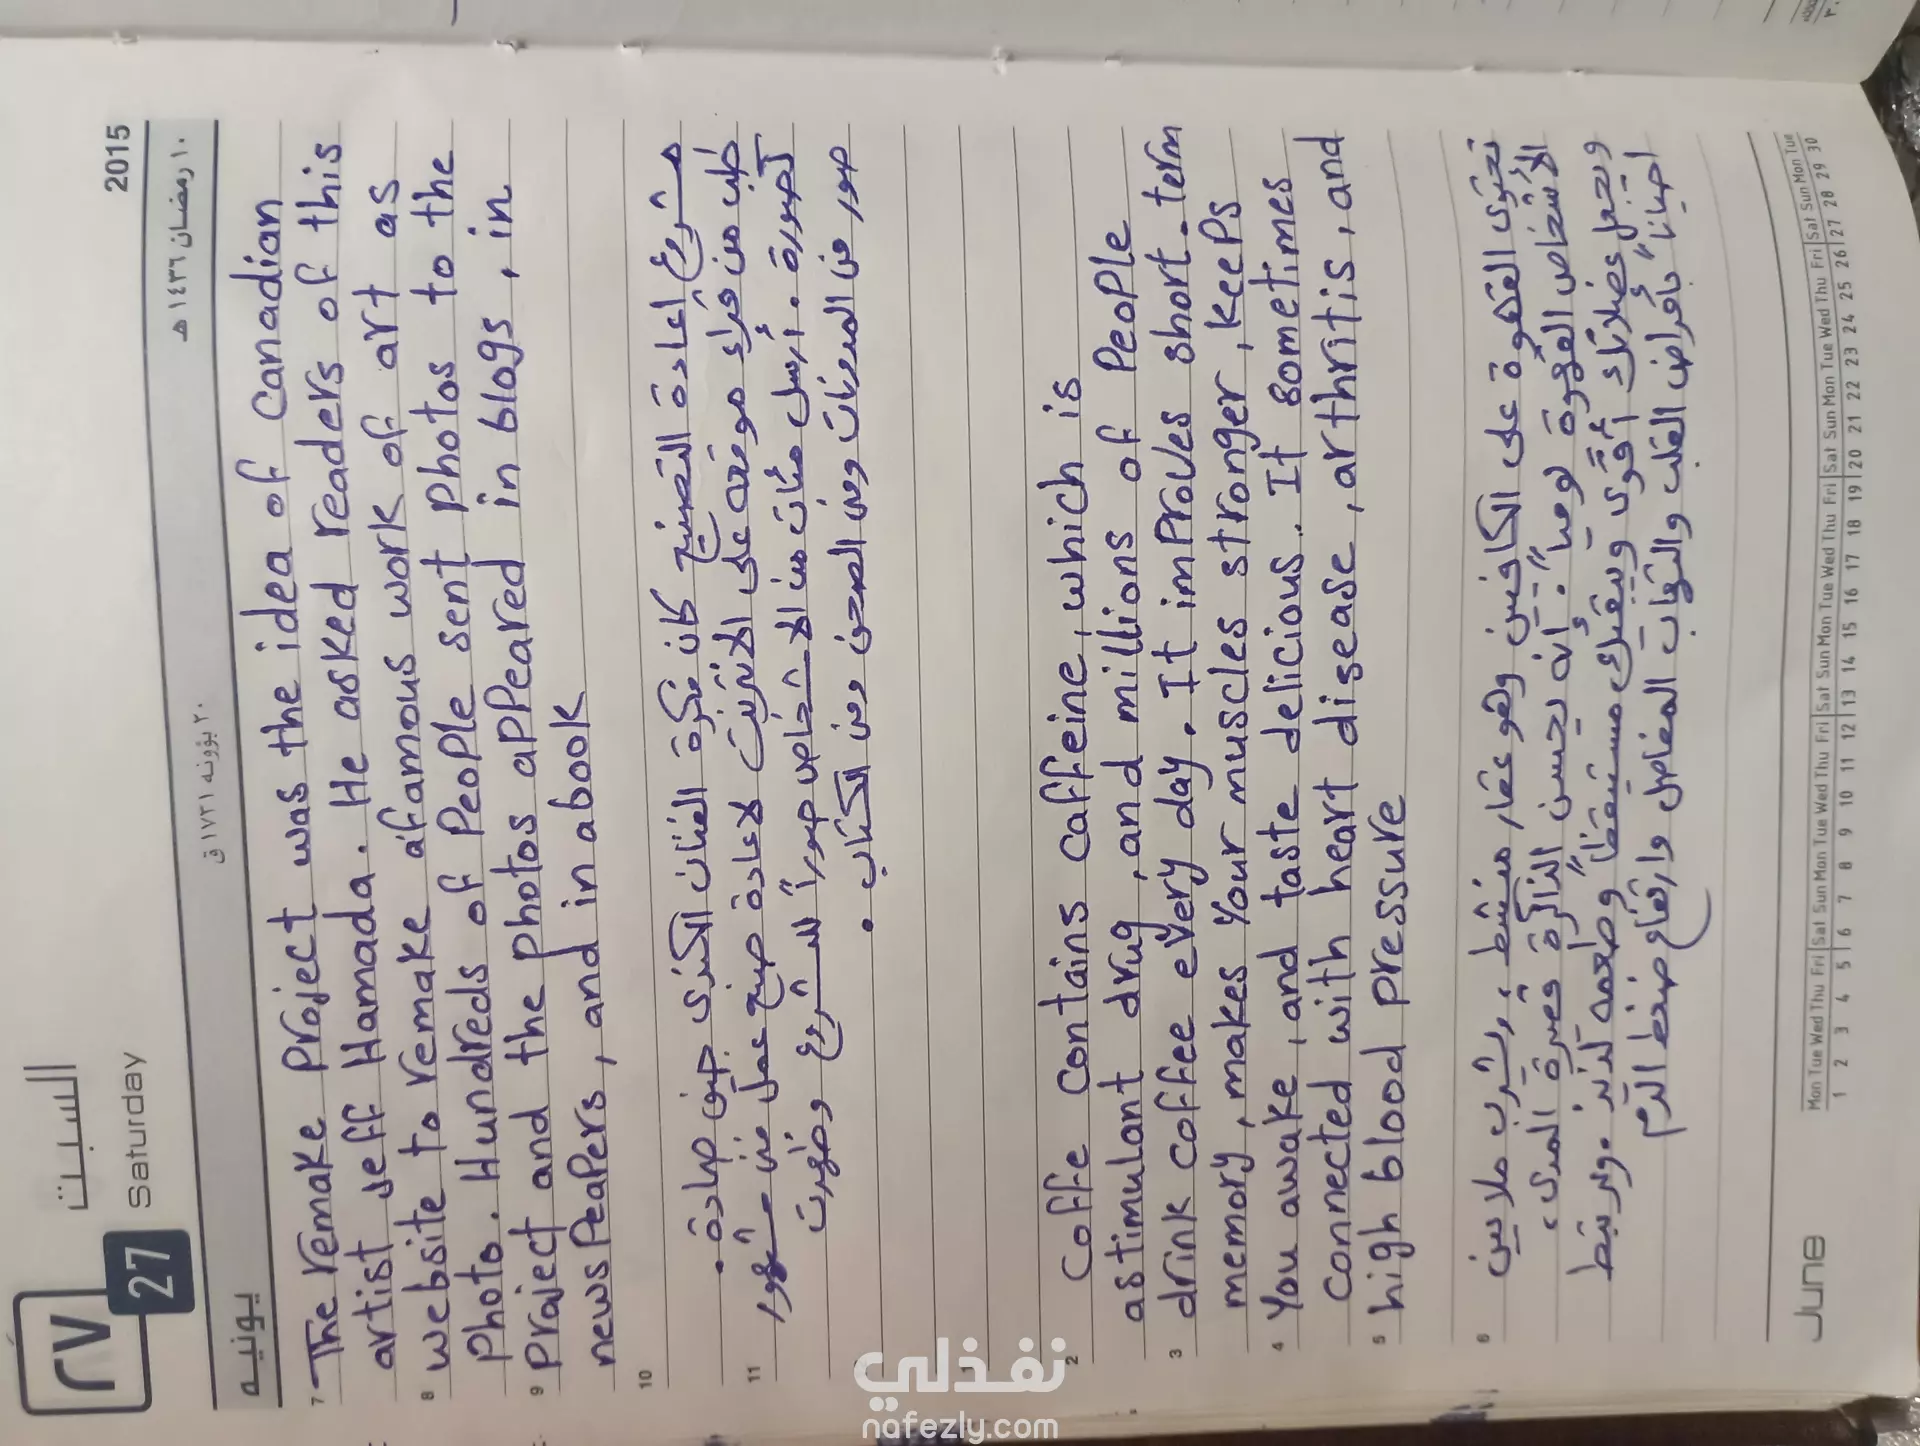 ٢٧
27
السبت
Saturday
2015
يونيه
٢٠ بؤونه ١٧٣١ ق
١٠ رمضان ١٤٣٦ هـ
7 The remake Project was the idea of Canadian
artist Jeff Hamada. He asked readers of this
8 website to remake a famous work of art as
Photo. Hundreds of People sent Photos to the
9 Project and the photos appeared in blogs, in
news Peapers, and in a book
10 مشروع اعادة التصنيع كان فكرة الفنان الكندى جيف حمادة.
طلب من قراء موقعه على الانترنيت لاعادة صنع عمل فنى مشهور
11 كصورة. أرسل مئات من الاشخاص صوراً للمشروع وظهرت
صور فى المدونات وفى الصحف وفى الكتاب.
1
2 Coffe contains caffeine, which is
a stimulant drug, and millions of People
3 drink coffee every day. It improves short-term
memory, makes your muscles stronger, keeps
4 You awake, and taste delicious. It sometimes
connected with heart disease, arthritis, and
5 high blood pressure
6 تحتوى القهوة على الكافيين وهو عقار منشط، يشرب ملايين
الأشخاص القهوة يوميا. أنه يحسن الذاكرة قصيرة المدى،
ويجعل عضلاتك أقوى ويبقيك مستيقظاً وطعمه لذيذ. ويرتبط
احياناً بأمراض القلب والتهاب المفاصل وارتفاع ضغط الدم
June
Mon Tue Wed Thu Fri Sat Sun Mon Tue Wed Thu Fri Sat Sun Mon Tue Wed Thu Fri Sat Sun Mon Tue Wed Thu Fri Sat Sun Mon Tue
1 2 3 4 5 6 7 8 9 10 11 12 13 14 15 16 17 18 19 20 21 22 23 24 25 26 27 28 29 30
نفذلي
nafezly.com